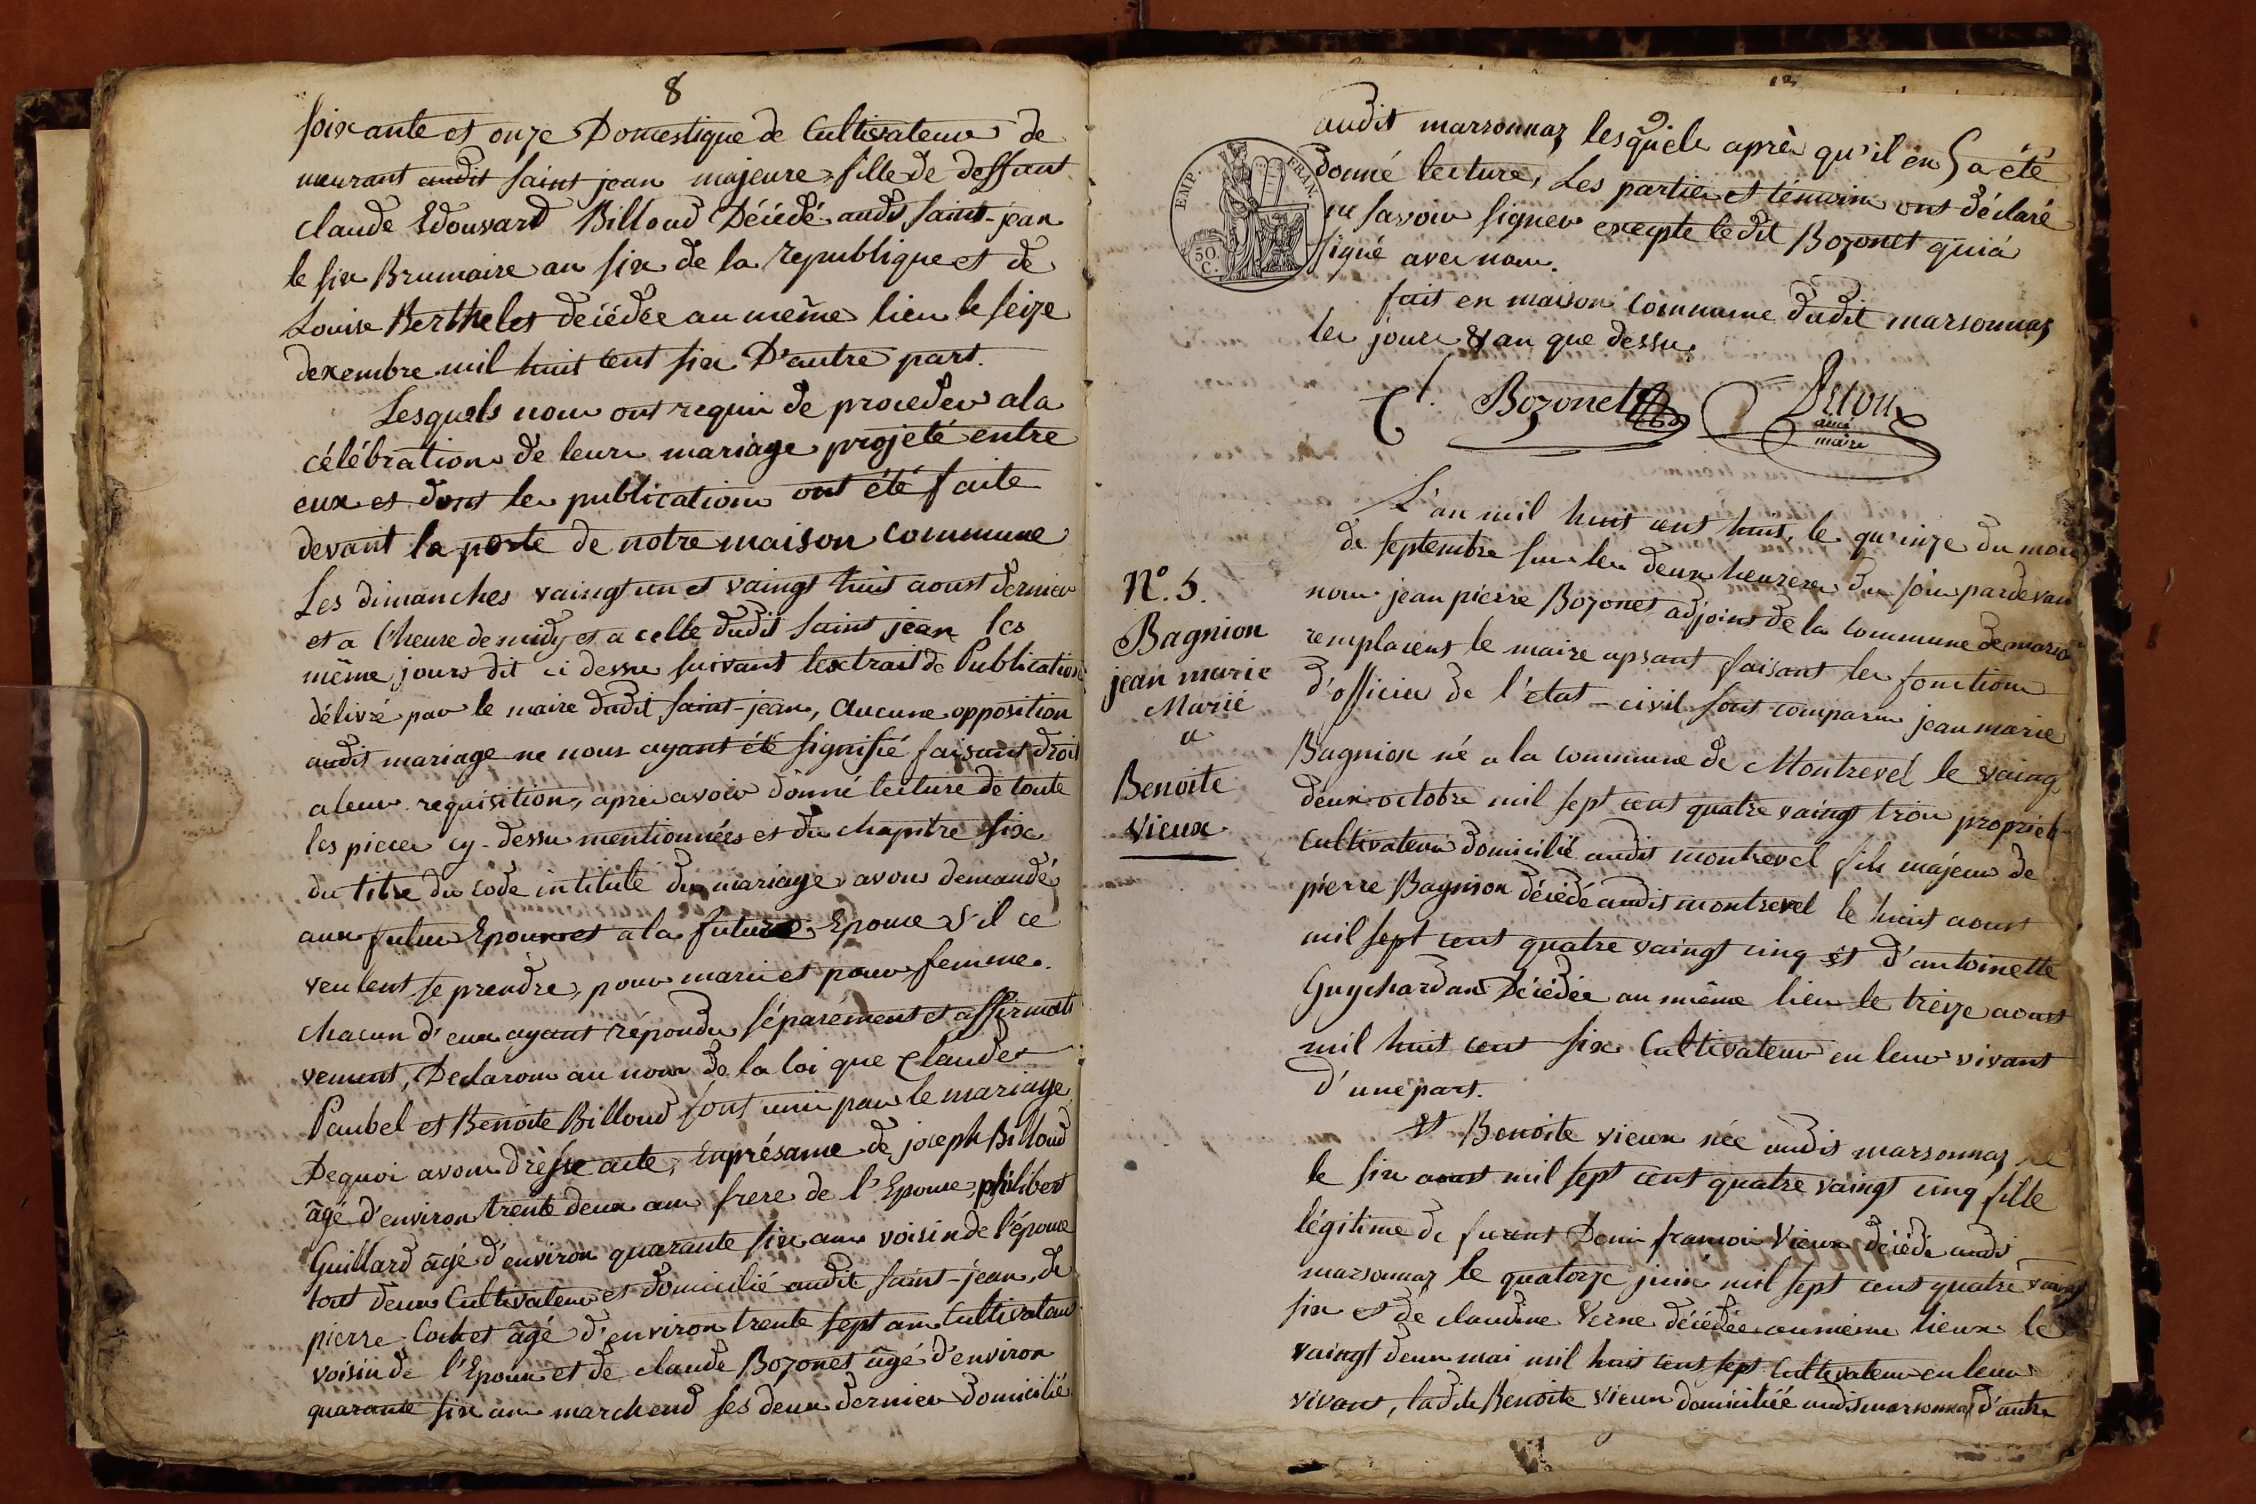 8
soixante et onze Domestique de Cultivateur de
meurant audit saint jean majeure fille de deffunt
claude Edouvard Billoud Décédé audit saint-jean
le six Brumaire an six de la republique et de
Louise Berthelet décédée au même lieu le seize
dexembre mil huit cent six D'autre part.
Lesquels nous ont requis de proceder a la
célébration de leurs mariage projeté entre
eux et dont les publications ont été faite
devant la porte de notre maison commune
Les dimanches vaingt un et vaingt huit aoust dernier
et a l'heure de midy et a celle dudit saint jean les
même jours dit ci dessus suivant lextrait de Publication
délivré par le maire dudit saint-jean, Aucune opposition
audit mariage ne nous ayant été signifié faisant droit
a leur requisition, après avoir donné lecture de toute
les pieces cy-dessus mentionnées et du chapitre six
du titre du code intitulé du mariage avons demandé
aux futur Epoux et a la future Epouse s'il ce
veulent se prendre, pour mari et pour femme.
chacun d'eux ayant répondu séparément et affirmati
vement, Declarons au nom de la loi que Claude
Paubel et Benoite Billoud sont unis par le mariage
De quoi avons dressé acte, en présance de joseph Billoud
âgé d'environ trente deux ans frere de l'Epouse, philibert
Guillard âgé d'environ quarante six ans voisin de l'épouse
tout deux Cultivateur et domicilié audit saint-jean, de
pierre Cochet âgé d'environ trente sept ans Cultivateur
voisin de l'Epoux et de claude Bozonet âgé d'environ
quarante six ans marchend ses deux dernier domicilié
9
audit marsonnaz lesquels après qu'il en S a été
donné lecture, Les parties et témoins ont déclaré
ne savoir signer excepte le dit Bozonet qui a
signé avec nous.
fait en maison commune dudit marsonnaz
les jours & an que dessus.
EMP. FRAN.
50 C.
Cl. Bozonet
maire
L'an mil huit cent huit, le quinze du mois
de septembre sur les deux heures du soir pardevan
nous jean pierre Bozonet adjoint de la commune de marso
remplacent le maire apsant faisant les fonctions
d'officier de l'état-civil sont comparus jean marie
Bagnion né a la commune de Montrevel le vaing
deux octobre mil sept cent quatre vaingt trois propriet
Cultivateur domicilié audit montrevel fils majeur de
pierre Bagnion décédé audit montrevel le huit aoust
mil sept cent quatre vaingt cinq et d'antoinette
Guychardan Décédée au même lieu le treize aoust
mil huit cent six Cultivateur en leur vivant
d'une part.
Et Benoite vieux née audit marsonnaz
le six aout mil sept cent quatre vaingt cinq fille
légitime de furent Denis francois Vieux décédé audit
marsonnaz le quatorze juin mil sept cent quatre vaingt
six et de claudine Verne décédée au même lieux le
vaingt deux mai mil huit cent sept Cultivateur en leur
vivant, ladite Benoite vieux domiciliée audit marsonnaz d'autre
N°. 5.
Bagnion
jean marie
Marié
a
Benoite
vieux